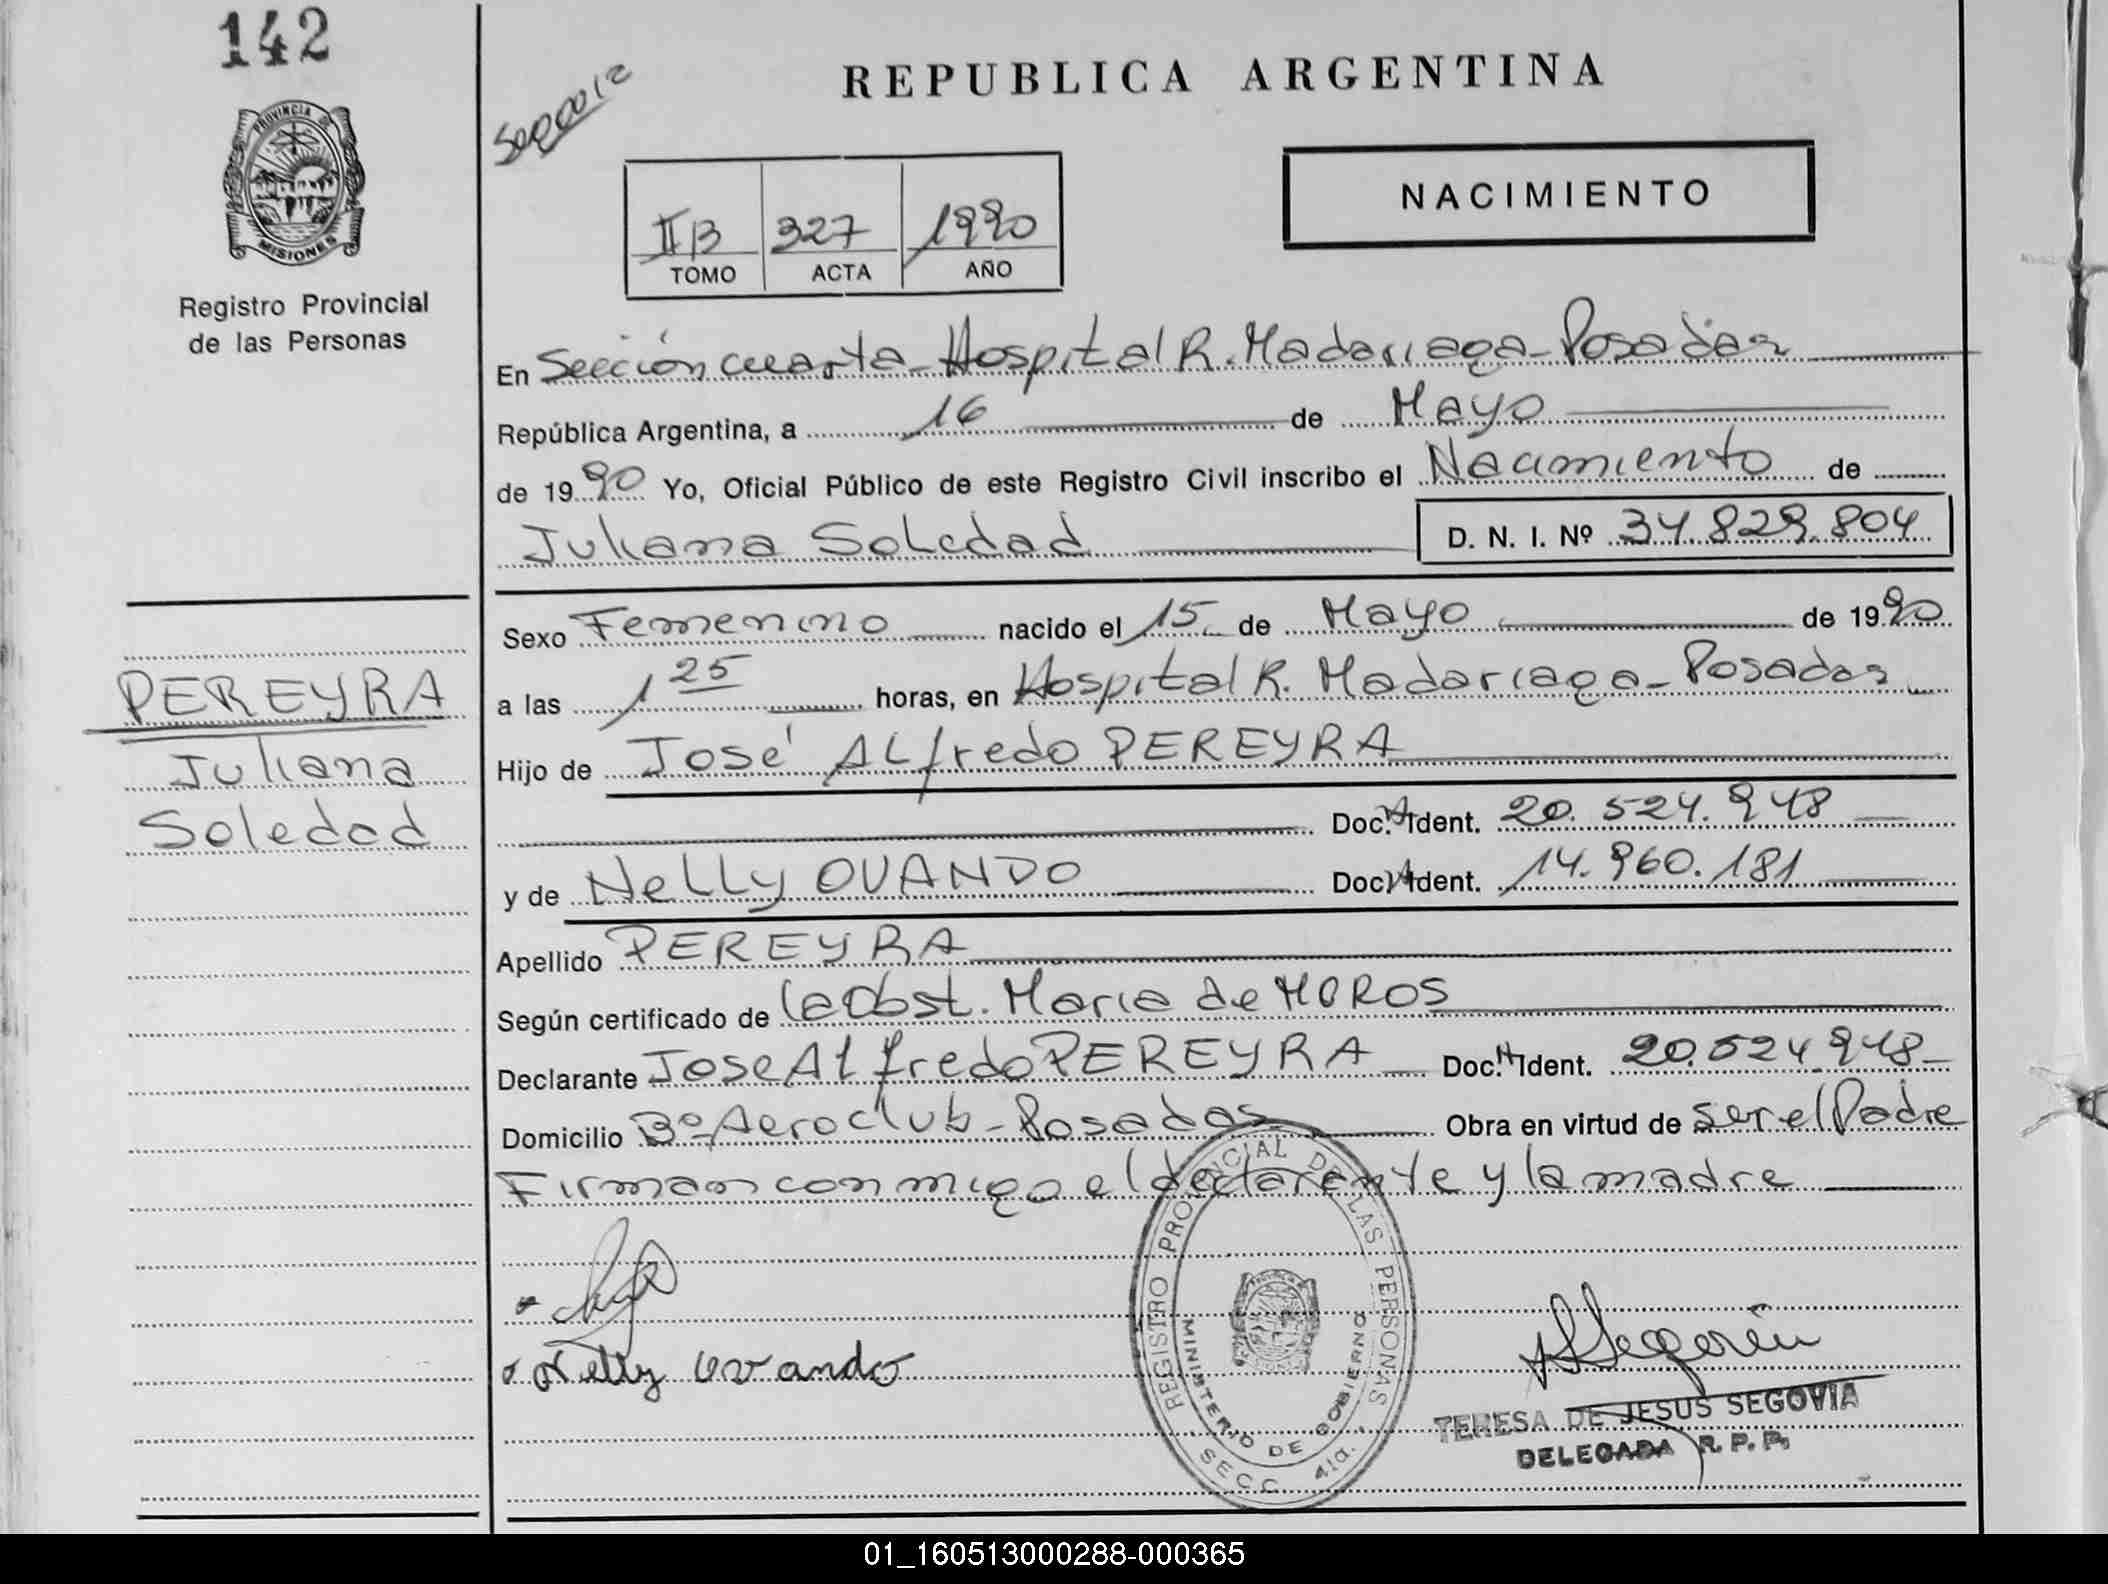 142
PROVINCIA DE
MISIONES
Registro Provincial
de las Personas
REPUBLICA ARGENTINA
NACIMIENTO
II B 327 1990
TOMO ACTA AÑO
En Sección cuarta - Hospital R. Madariaga - Posadas
República Argentina, a 16 de Mayo
de 1990 Yo, Oficial Público de este Registro Civil inscribo el Nacimiento de
Juliana Soledad D. N. I. Nº 34.829.804
Sexo Femenino nacido el 15 de Mayo de 1990
a las 1 25 horas, en Hospital R. Madariaga - Posadas
Hijo de José Alfredo PEREYRA
Doc. Ident. 20.524.948
y de Nelly OVANDO Doc. Ident. 14.960.181
Apellido PEREYRA
Según certificado de la Obst. Maria de MOROS
Declarante Jose Alfredo PEREYRA Doc. Ident. 20.524.948
Domicilio Bº Aeroclub - Posadas Obra en virtud de ser el Padre
Firman conmigo el declarante y la madre
PEREYRA
Juliana
Soledad
Nelly Ovando
REGISTRO PROVINCIAL DE LAS PERSONAS
MINISTERIO DE GOBIERNO
SECC. 4ta.
TERESA DE JESUS SEGOVIA
DELEGADA R. P. P.
01_160513000288-000365